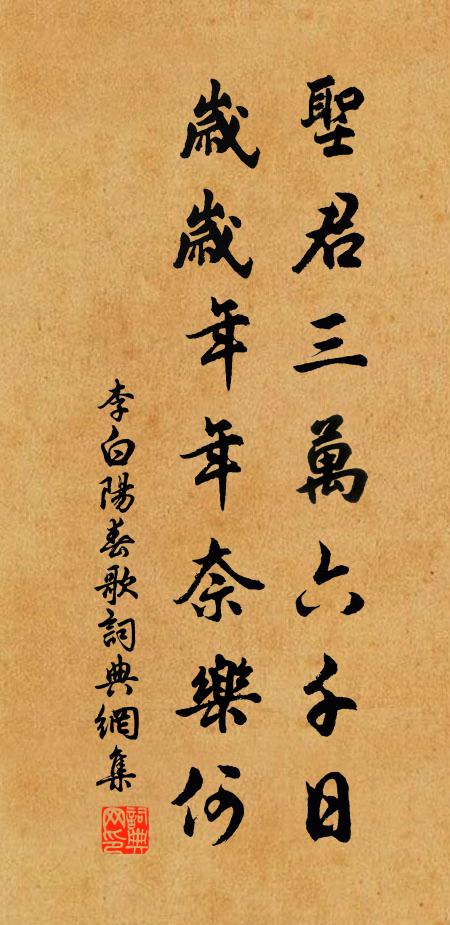 聖君三萬六千日
歲歲年年奈樂何
李白陽春歌詞典網集
詞典網印